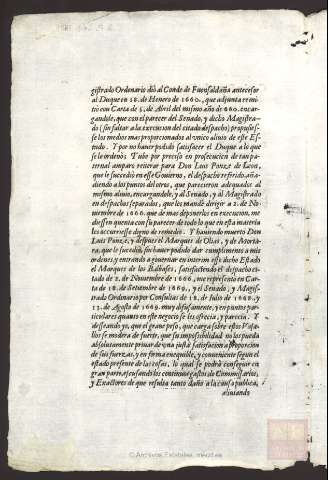 gistrado Ordenario diò al Conde de Fuensaldaña antecesor
al Duque en 16. de Henero de 1660, que adjunta remi-
tiò con Carta de 5. de Abril del mismo año de 660. encar-
gandole, que con el parecer del Senado, y dicho Magistra-
do (sin faltar a la execucion del citado despacho) propusies-
se los medios mas proporcionados al vnico aliuio de este Es-
tado. Y por no hauer podido satisfacer el Duque a lo que
se le ordenò; Tubo por preciso en prosecucion de tan pa-
ternal amparo reiterar para Don Luis Ponze de Leon,
que le succediò en esse Gouierno, el despacho referido aña-
diendo a los puntos del otro, que parecieron adequados al
mismo aliuio, encargandole, y al Senado, y al Magistrado
en despachos separados, que los mandè dirigir a 2. de No-
uiembre de 1666. que de mas deponerlos en execucion, me
diessen quenta con su parecer de todo lo que en esta materia
les occurriesse digno de remedio. Y hauiendo muerto Don
Luis Ponze, y despues el Marques de Olias, y de Morta-
ra, que le succediò, sin hauer podido dar cumplimento a mis
ordenes, y entrando a gouernar en interim esse dicho Estado
el Marques de los Balbases, satisfaciendo el despacho es-
tado de 2. de Nouiembre de 1666, me representò en Car-
ta de 18. de Setiembre de 1669, y el Senado, y Magis-
trado Ordenario por Consultas de 18. de Julio de 1668. y
12. de Agosto de 1669. muy difusamente, y en puntos par-
ticulares quanto en este negocio se les ofrecia, y parecia. Y
desseando yo, que el graue peso, que carga sobre estos Vasa-
llos se modere de suerte, que su impossibilidad no los pueda
absolutamente priuar de vna justa satisfacion a proporcion
de sus fuerzas, y en forma exequible, y conueniente segun el
estado presente de las cosas, lo qual se podrà conseguir en
gran parte, escusando los continuos gastos de Commissarios,
y Exactores de que resulta tanto daño a la causa publica,
© Archivos Estatales, mecd.es